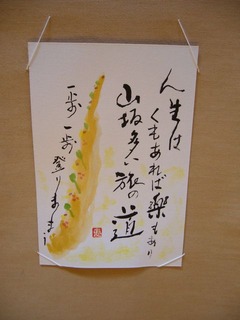 人生は
くもあれば楽もあり
山坂多い旅の道
一歩一歩登りましょう